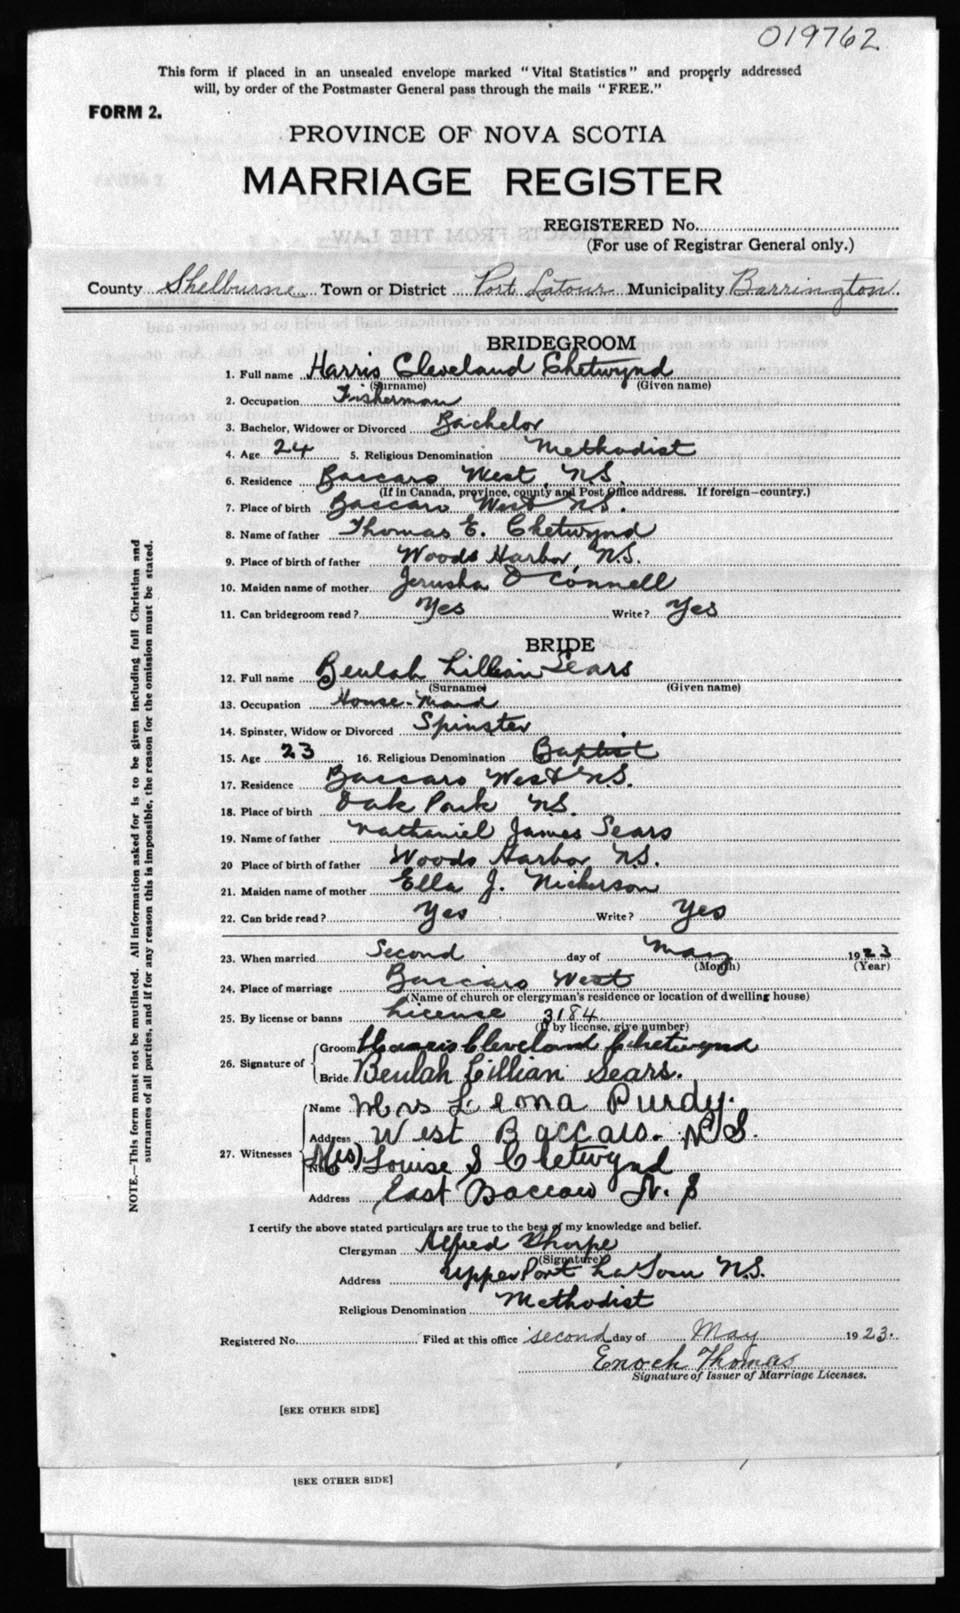 019762
This form if placed in an unsealed envelope marked "Vital Statistics" and properly addressed
will, by order of the Postmaster General pass through the mails "FREE."
FORM 2.
PROVINCE OF NOVA SCOTIA
MARRIAGE REGISTER
REGISTERED No.
(For use of Registrar General only.)
County Shelburne Town or District Port Latour Municipality Barrington
BRIDEGROOM
1. Full name Harris Cleveland Chetwynd
(Surname) (Given name)
2. Occupation Fisherman
3. Bachelor, Widower or Divorced Bachelor
4. Age 24 5. Religious Denomination Methodist
6. Residence Baccaro West, N.S.
(If in Canada, province, county and Post Office address. If foreign—country.)
7. Place of birth Baccaro West N.S.
8. Name of father Thomas E. Chetwynd
9. Place of birth of father Woods Harbor, N.S.
10. Maiden name of mother Jerusha O'Connell
11. Can bridegroom read? Yes Write? Yes
BRIDE
12. Full name Beulah Lillian Sears
(Surname) (Given name)
13. Occupation House-Maid
14. Spinster, Widow or Divorced Spinster
15. Age 23 16. Religious Denomination Baptist
17. Residence Baccaro West, N.S.
18. Place of birth Oak Park N.S.
19. Name of father Nathaniel James Sears
20 Place of birth of father Woods Harbor N.S.
21. Maiden name of mother Ella J. Nickerson
22. Can bride read? Yes Write? Yes
23. When married Second day of May 1923
(Month) (Year)
24. Place of marriage Baccaro West
(Name of church or clergyman's residence or location of dwelling house)
25. By license or banns License 3184
(If by license, give number)
26. Signature of Groom Harris Cleveland Chetwynd
Bride Beulah Lillian Sears.
27. Witnesses Name Mrs Leona Purdy.
Address West Baccaro. N.S.
Name (Mrs) Louise S Chetwynd
Address East Baccaro N.S
I certify the above stated particulars are true to the best of my knowledge and belief.
Clergyman Alfred Thorpe
(Signature)
Address Upper Port La Tour N.S.
Religious Denomination Methodist
Registered No. Filed at this office second day of May 1923.
Enoch Thomas
Signature of Issuer of Marriage Licenses.
[SEE OTHER SIDE]
[SEE OTHER SIDE]
NOTE.—This form must not be mutilated. All information asked for is to be given including full Christian and
surnames of all parties, and if for any reason this is impossible, the reason for the omission must be stated.